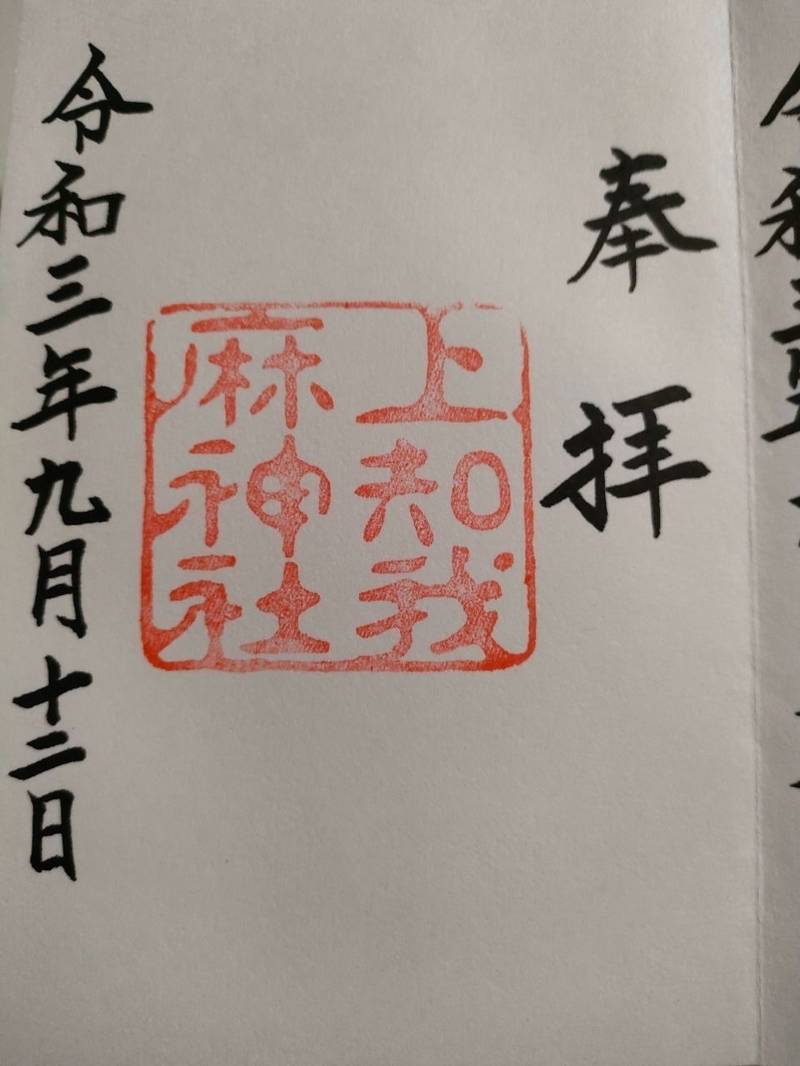 奉拝
上知我
麻神社
令和三年九月十二日